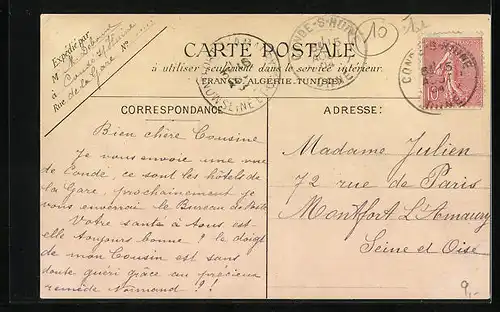 Expédié par
M
à Condé s/Huisne
Rue de la Gare N°
10
CARTE POSTALE
à utiliser seulement dans le service intérieur
(FRANCE, ALGÉRIE, TUNISIE)
CONDE-S-HUISNE
CONDE-S-HUISNE
CORRESPONDANCE
Bien chère Cousine
Je vous envoie une vue
de Condé, ce sont les hôtels de
la Gare, prochainement je
vous enverrai le Bureau de Poste
Votre santé à tous est-
elle toujours bonne ? le doigt
de mon Cousin est sans
doute guéri grâce au précieux
remède Normand ?
ADRESSE:
Madame Julien
72 rue de Paris
Montfort L'Amaury
Seine et Oise
9,-